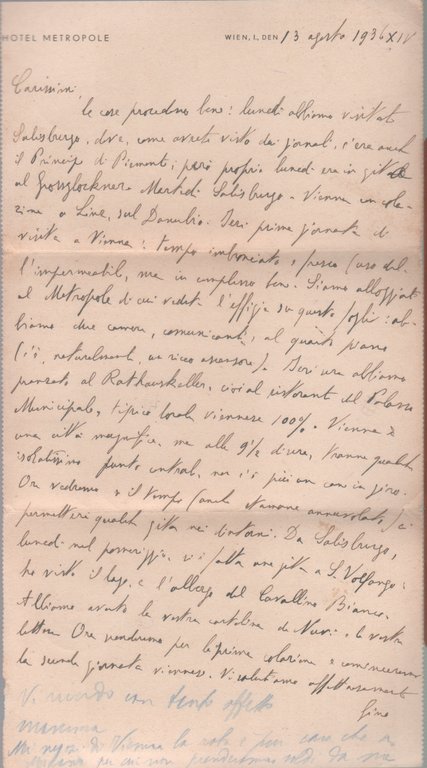 HOTEL METROPOLE
WIEN, I., DEN 13 agosto 1936 XIV
Carissimi,
le cose procedono bene: lunedì abbiamo visitato
Salisburgo, dove, come avrete visto dai giornali, c'era anche
il Principe di Piemonte; però proprio lunedì era in gita
al Grossglockner. Martedì Salisburgo - Vienna con cola-
zione a Linz, sul Danubio. Ieri prima giornata di
visita a Vienna: tempo imbronciato, fresco (uso del-
l'impermeabile), ma in complesso bene. Siamo alloggiati
al Metropole di cui vedete l'effigie su questo foglio: ab-
biamo due camere, comunicanti, al quarto piano
(c'è, naturalmente, un ricco ascensore). Ieri sera abbiamo
pranzato al Rathauskeller, cioè al ristorante del Palazzo
Municipale, tipico locale viennese 100%. Vienna è
una città magnifica, ma alle 9½ di sera, tranne qualche
isolatissimo punto centrale, non c'è più un cane in giro.
Ora vedremo se il tempo (anche stamane annuvolato) ci
permetterà qualche gita nei dintorni. Da Salisburgo,
lunedì nel pomeriggio, si è fatta una gita a S. Volfango:
ho visto il lago, e l'albergo del Cavallino Bianco.
Abbiamo avuto la vostra cartolina da Nervi e la vostra
lettera. Ora prenderemo per la prima colazione e cominceremo
la seconda giornata viennese. Vi salutiamo affettuosamente
Gino
Vi ricordo con tanto affetto
mamma
Mi negozi di Vienna la roba è più cara che a
Milano per cui non prenderemo